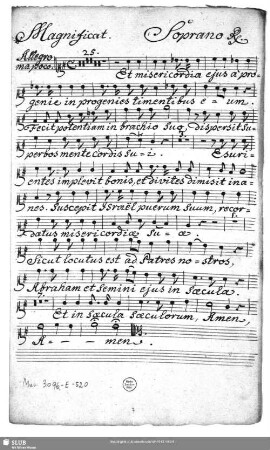 Magnificat. Soprano R
Allegro
ma poco.
25.
Et misericordia ejus a pro-
genie in progenies timentibus e - um.
Fecit potentiam in brachio suo, dispersit su-
perbos mente cordis su - i. Esuri-
entes implevit bonis, et divites dimisit ina-
nes. Suscepit Israël puerum suum, recor-
datus misericordiæ su - æ.
Sicut locutus est ad Patres no - stros,
Abraham et semini ejus in sæcula.
Et in sæcula sæculorum, Amen,
A - - - men.
Mus. 3098-E-520
SLUB